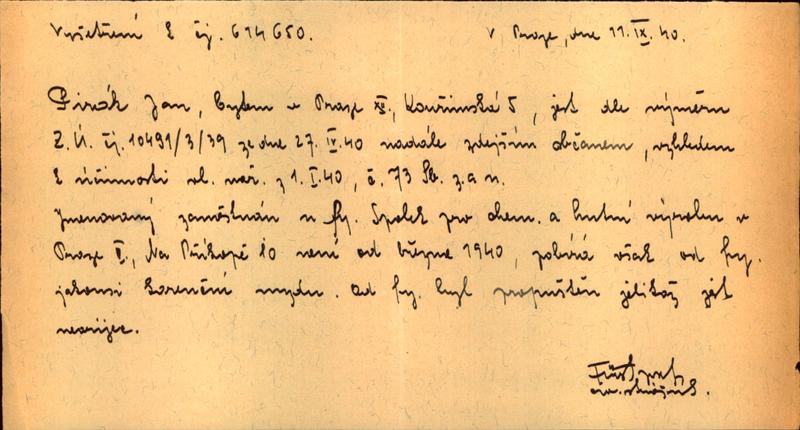 Vyšetření k čj. 614650. V Praze, dne 11.IX.40.
Pirák Jan, bytem v Praze XII., Kouřimská 5, jest dle výměru
Z.Ú. čj. 10491/3/39 ze dne 27.IV.40 nadále zdejším občanem, vzhledem
k účinnosti vl. nař. z 1.I.40, č. 73 Sb. z. a n.
Jmenovaný zaměstnán u fy. Spolek pro chem. a hutní výrobu v
Praze II., Na Příkopě 10 není od března 1940, pobírá však od fy.
jakousi karenční mzdu. Od fy. byl propuštěn jelikož jest
nearijec.